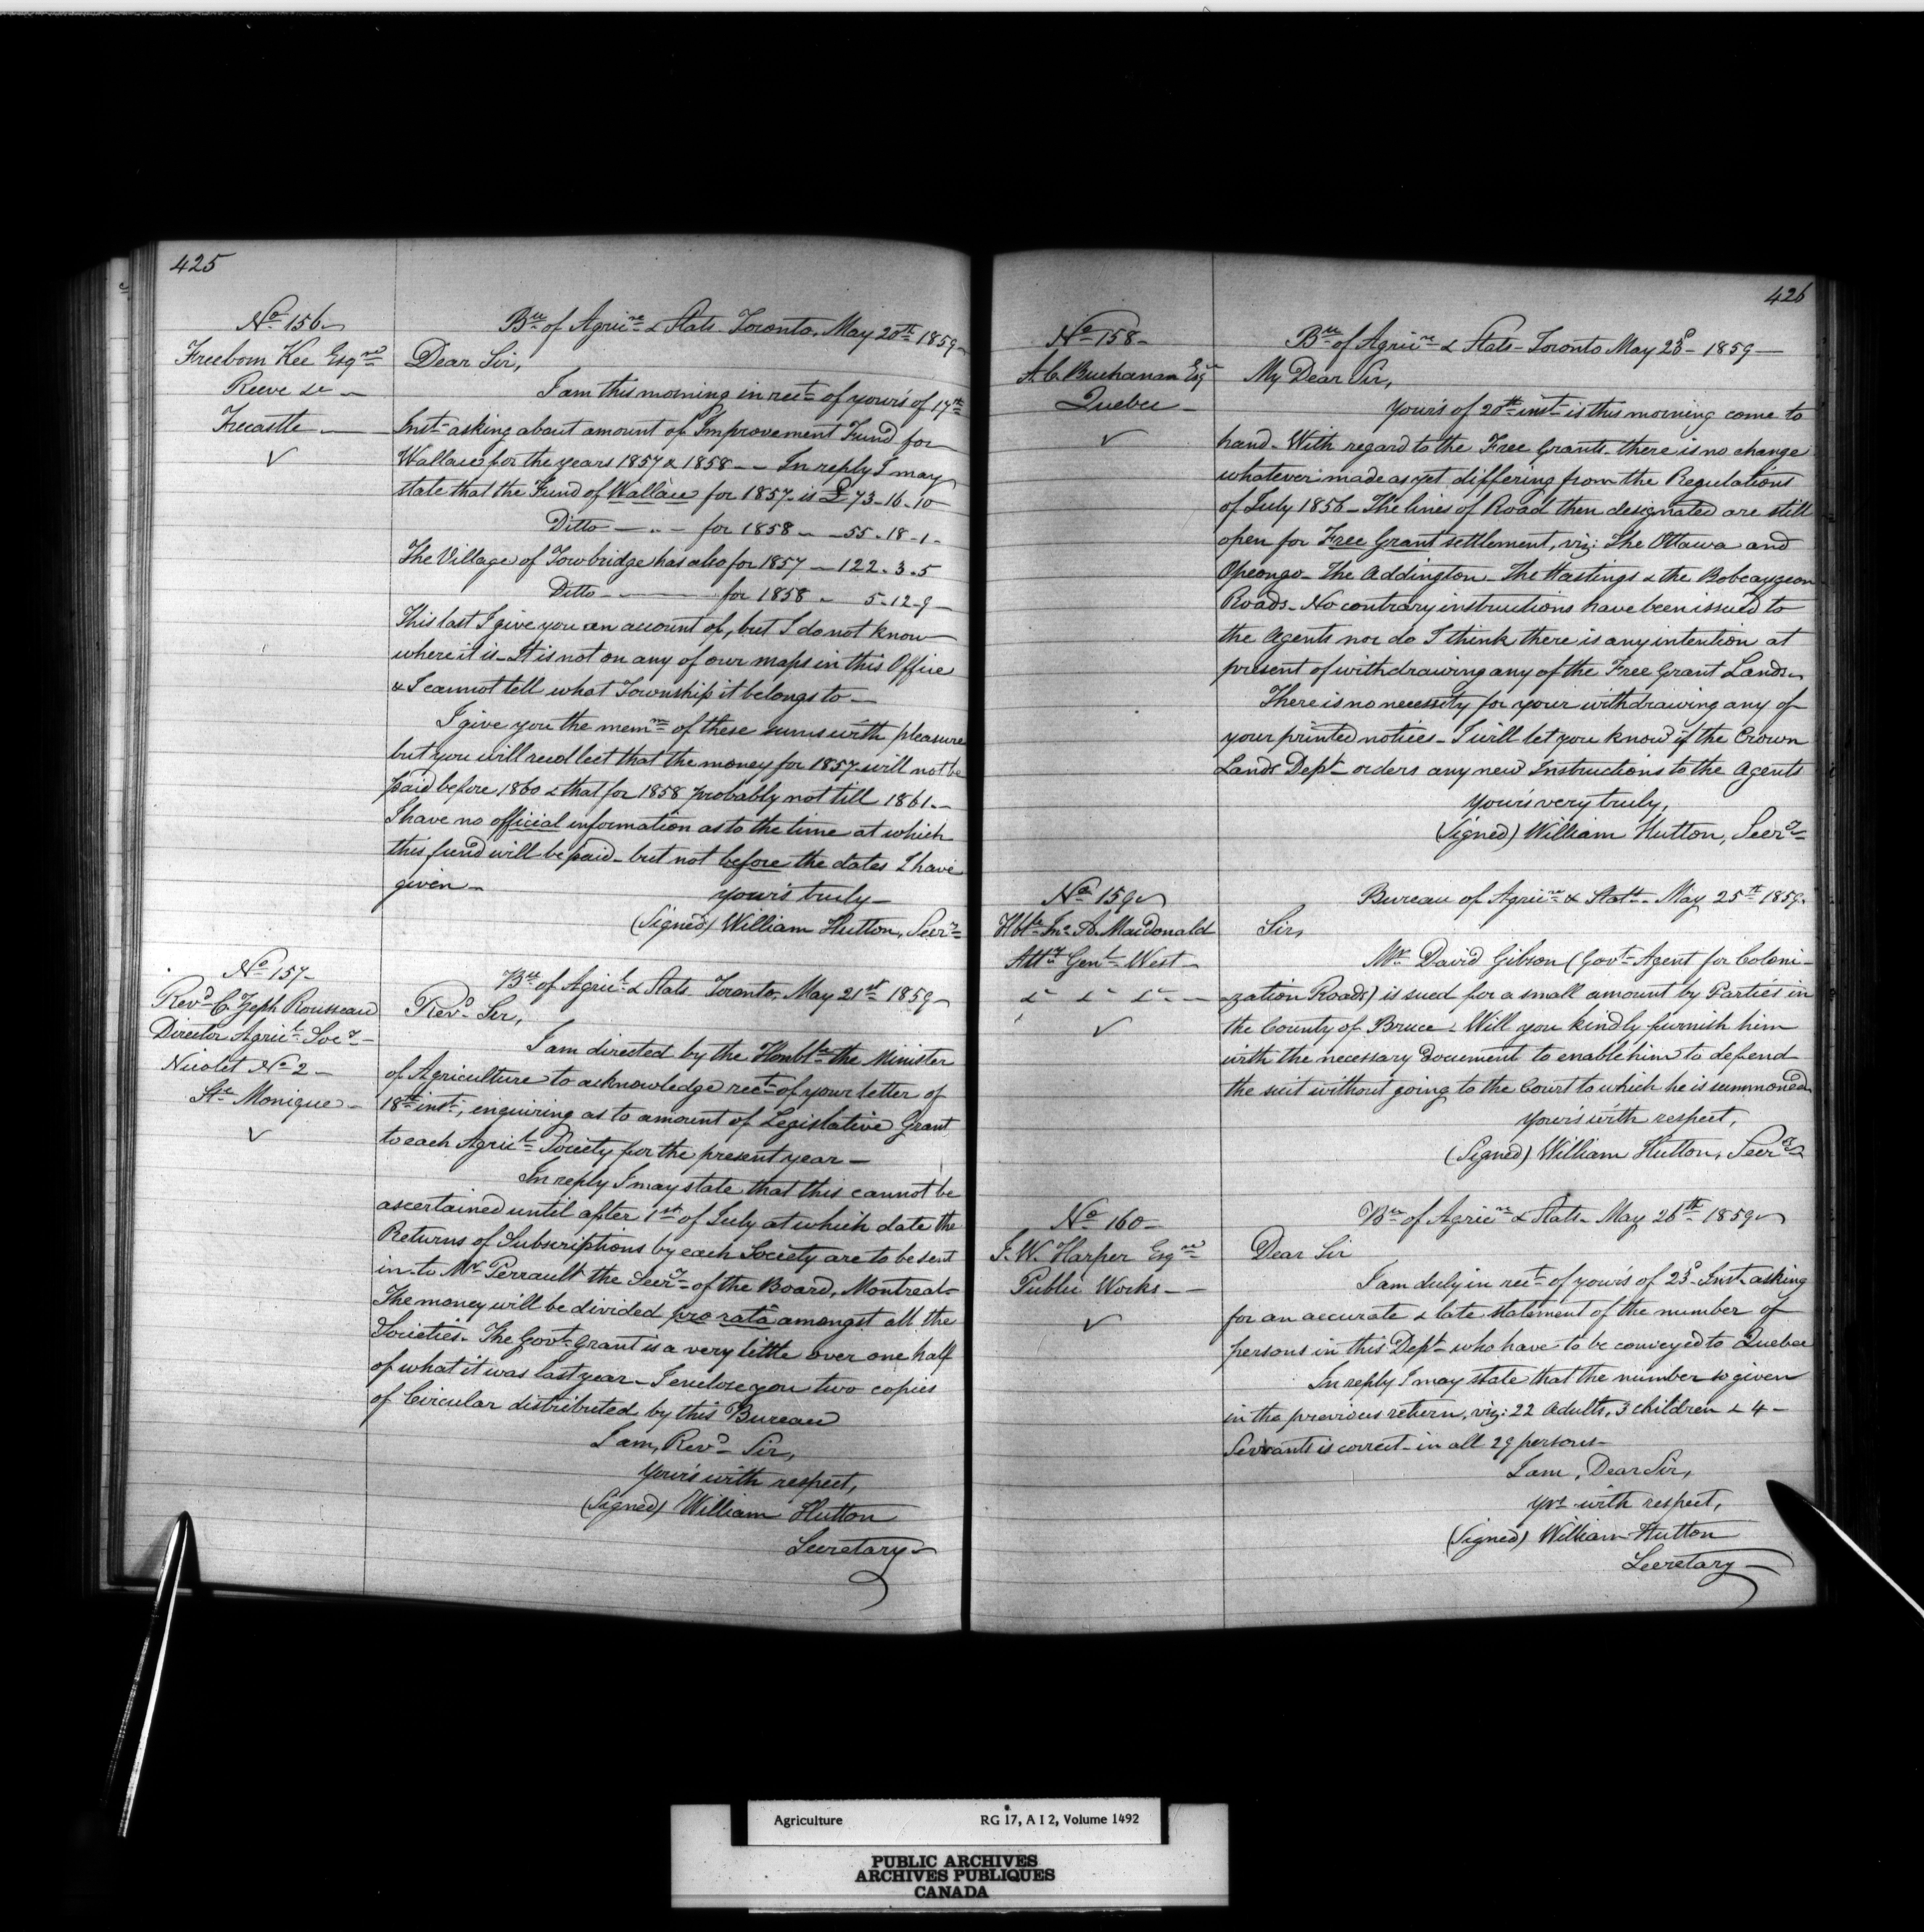 425
No 156
Freeborn Kee Esqre
Reeve &c
Trecastle
Bu of Agricre & Stats Toronto, May 20th 1859
Dear Sir,
I am this morning in rect of your's of 17th
Inst asking about amount of Improvement Fund for
Wallace for the years 1857 & 1858 — In reply I may
state that the Fund of Wallace for 1857 is £73-16-10
Ditto — for 1858 — 55-18-1-
The Village of Towbridge has also for 1857 — 122-3-5
Ditto — for 1858 — 5-12-9
This last I give you an account of, but I do not know
where it is — It is not on any of our maps in this Office
& I cannot tell what Township it belongs to —
I give you the memm of these sums with pleasure
but you will recollect that the money for 1857 will not be
paid before 1860 & that for 1858 probably not till 1861 —
I have no official information as to the time at which
this fund will be paid — but not before the dates I have
given —
your's truly —
(Signed) William Hutton, Secry
No 157
Revd C. Zeph Rousseau
Director Agricl Socy
Nicolet No 2
Ste Monique
Bu of Agricl & Stats Toronto, May 21st 1859
Revd Sir,
I am directed by the Honble the Minister
of Agriculture to acknowledge rect of your letter of
18th inst, enquiring as to amount of Legislative Grant
to each Agricl Society for the present year —
In reply I may state that this cannot be
ascertained until after 1st of July at which date the
Returns of Subscriptions by each Society are to be sent
in to Mr Perrault the Secry of the Board, Montreal —
The money will be divided pro rata amongst all the
Societies — The Govt Grant is a very little over one half
of what it was last year — I enclose you two copies
of Circular distributed by this Bureau
I am, Revd Sir,
Your's with respect,
(Signed) William Hutton
Secretary
426
No 158
A. C. Buchanan Esqr
Quebec
Bu of Agricre & Stats — Toronto May 23d 1859
My Dear Sir,
Your's of 20th inst is this morning come to
hand — With regard to the Free Grants there is no change
whatever made as yet differing from the Regulations
of July 1856 — The lines of Road then designated are still
open for Free Grant settlement, viz: The Ottawa and
Opeongo — The Addington — The Hastings & the Bobcaygeon
Roads — No contrary instructions have been issued to
the Agents nor do I think there is any intention at
present of withdrawing any of the Free Grant Lands —
There is no necessity for your withdrawing any of
your printed notices — I will let you know if the Crown
Lands Dept orders any new Instructions to the Agents
Your's very truly,
(Signed) William Hutton, Secry
No 159
Hble Jno A. MacDonald
Atty Genl West
&c &c &c
Bureau of Agricre & Statts — May 25th 1859.
Sir,
Mr David Gibson (Govt Agent for Coloni-
-zation Roads) is sued for a small amount by Parties in
the County of Bruce — Will you kindly furnish him
with the necessary document to enable him to defend
the suit without going to the Court to which he is summoned
Your's with respect,
(Signed) William Hutton, Secry
No 160
J. W. Harper Esqre
Public Works
Bu of Agricre & Stats — May 26th 1859
Dear Sir
I am duly in rect of your's of 23d Inst asking
for an accurate & late statement of the number of
persons in this Dept who have to be conveyed to Quebec
In reply I may state that the number so given
in the previous return, viz: 22 Adults, 3 children & 4 —
Servants is correct — in all 29 persons —
I am, Dear Sir,
Yrs with respect,
(Signed) William Hutton
Secretary
Agriculture RG 17, A I 2, Volume 1492
PUBLIC ARCHIVES
ARCHIVES PUBLIQUES
CANADA